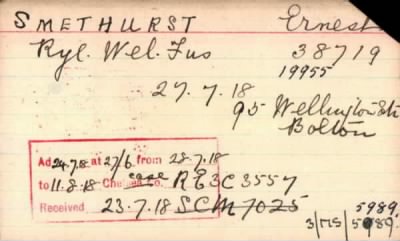 SMETHURST Ernest
Ryl. Wel. Fus 38719
19955
27.7.18
95 Wellington St
Bolton
Ad 24.7.8 at 27/6 from 28.7.18
to 11.8.18 Chelsea Co. R E3C 3557
Received 23.7.18 SCM 7025 5989
3/MS/5989